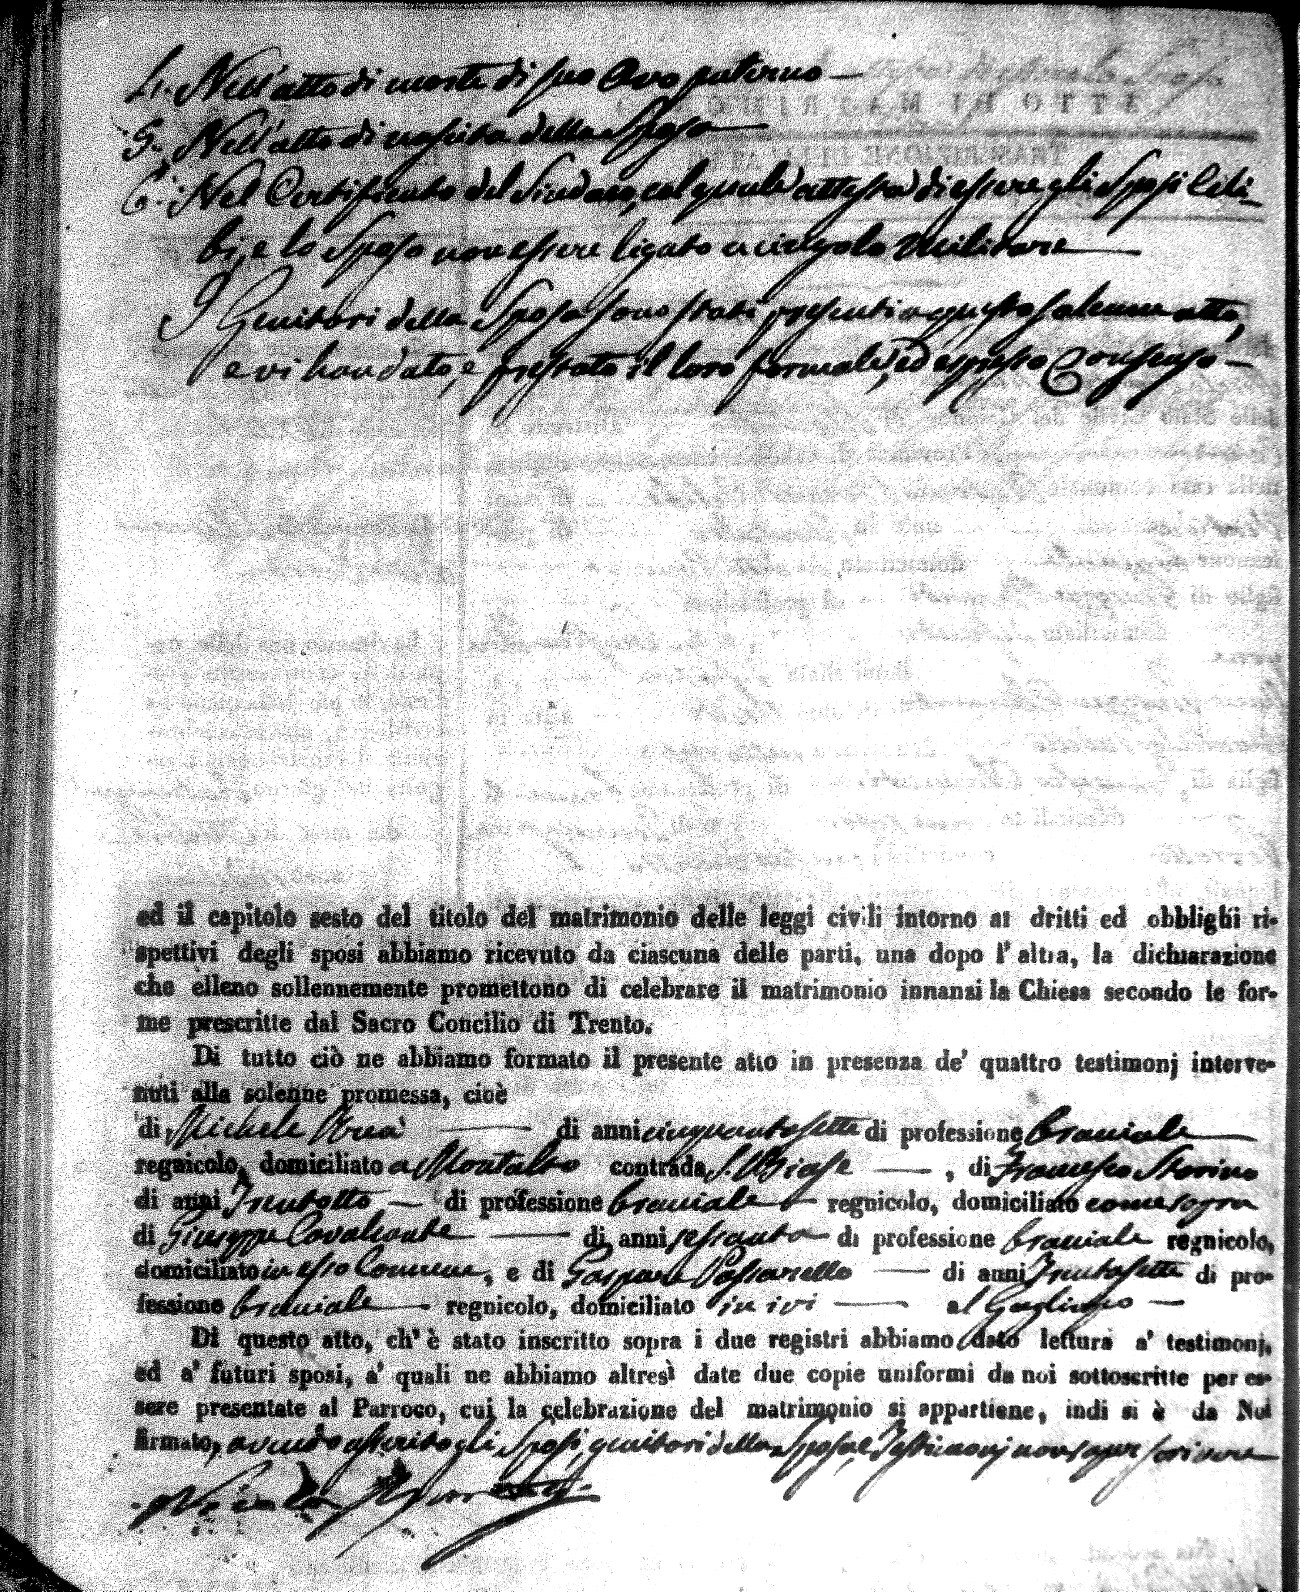 4.° Nell'atto di morte di suo Avo paterno —
5.° Nell'atto di nascita della Sposa —
6.° Nel Certificato del Sindaco, col quale attesta di essere gli Sposi libi-
bi, e lo Sposo non essere ligato a vincolo militare —
I Genitori della Sposa sono stati presenti a questo solenne atto,
e vi han dato, e prestato il loro formale, ed espresso Consenso —
ed il capitolo sesto del titolo del matrimonio delle leggi civili intorno ai dritti ed obblighi ri-
spettivi degli sposi abbiamo ricevuto da ciascuna delle parti, una dopo l'altra, la dichiarazione
che elleno sollennemente promettono di celebrare il matrimonio innanzi la Chiesa secondo le for-
me prescritte dal Sacro Concilio di Trento.
Di tutto ciò ne abbiamo formato il presente atto in presenza de' quattro testimonj interve-
nuti alla solenne promessa, cioè
di Michele — di anni cinquantasette di professione bracciale —
regnicolo, domiciliato a Montalto contrada S. Biase — , di Francesco Storino
di anni Trentotto — di professione bracciale — regnicolo, domiciliato come sopra
di Giuseppe Cavalcante — di anni sessanta — di professione bracciale regnicolo,
domiciliato in esso Comune, e di Gaspare Passarello — di anni Trentasette di pro-
fessione bracciale — regnicolo, domiciliato in ivi — al Gagliano —
Di questo atto, ch'è stato inscritto sopra i due registri abbiamo dato lettura a' testimonj,
ed a' futuri sposi, a' quali ne abbiamo altresì date due copie uniformi da noi sottoscritte per es-
sere presentate al Parroco, cui la celebrazione del matrimonio si appartiene, indi si è da Noi
firmato, avendo asserito gli Sposi, genitori della Sposa, e Testimonj non saper scrivere